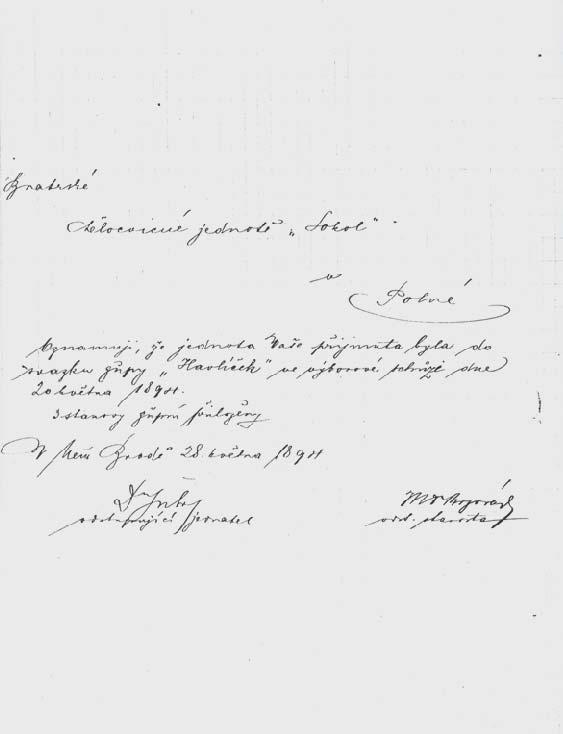 Bratrské
tělocvičné jednotě „Sokol“
v
Polné
Oznamuji, že jednota Vaše přijmuta byla do
svazku župy „Havlíček“ ve výborové schůzi dne
20 května 1894.
3 stanovy župní přiloženy
V Něm Brodě 28. května 1894
odstupující jednatel
odst. starosta